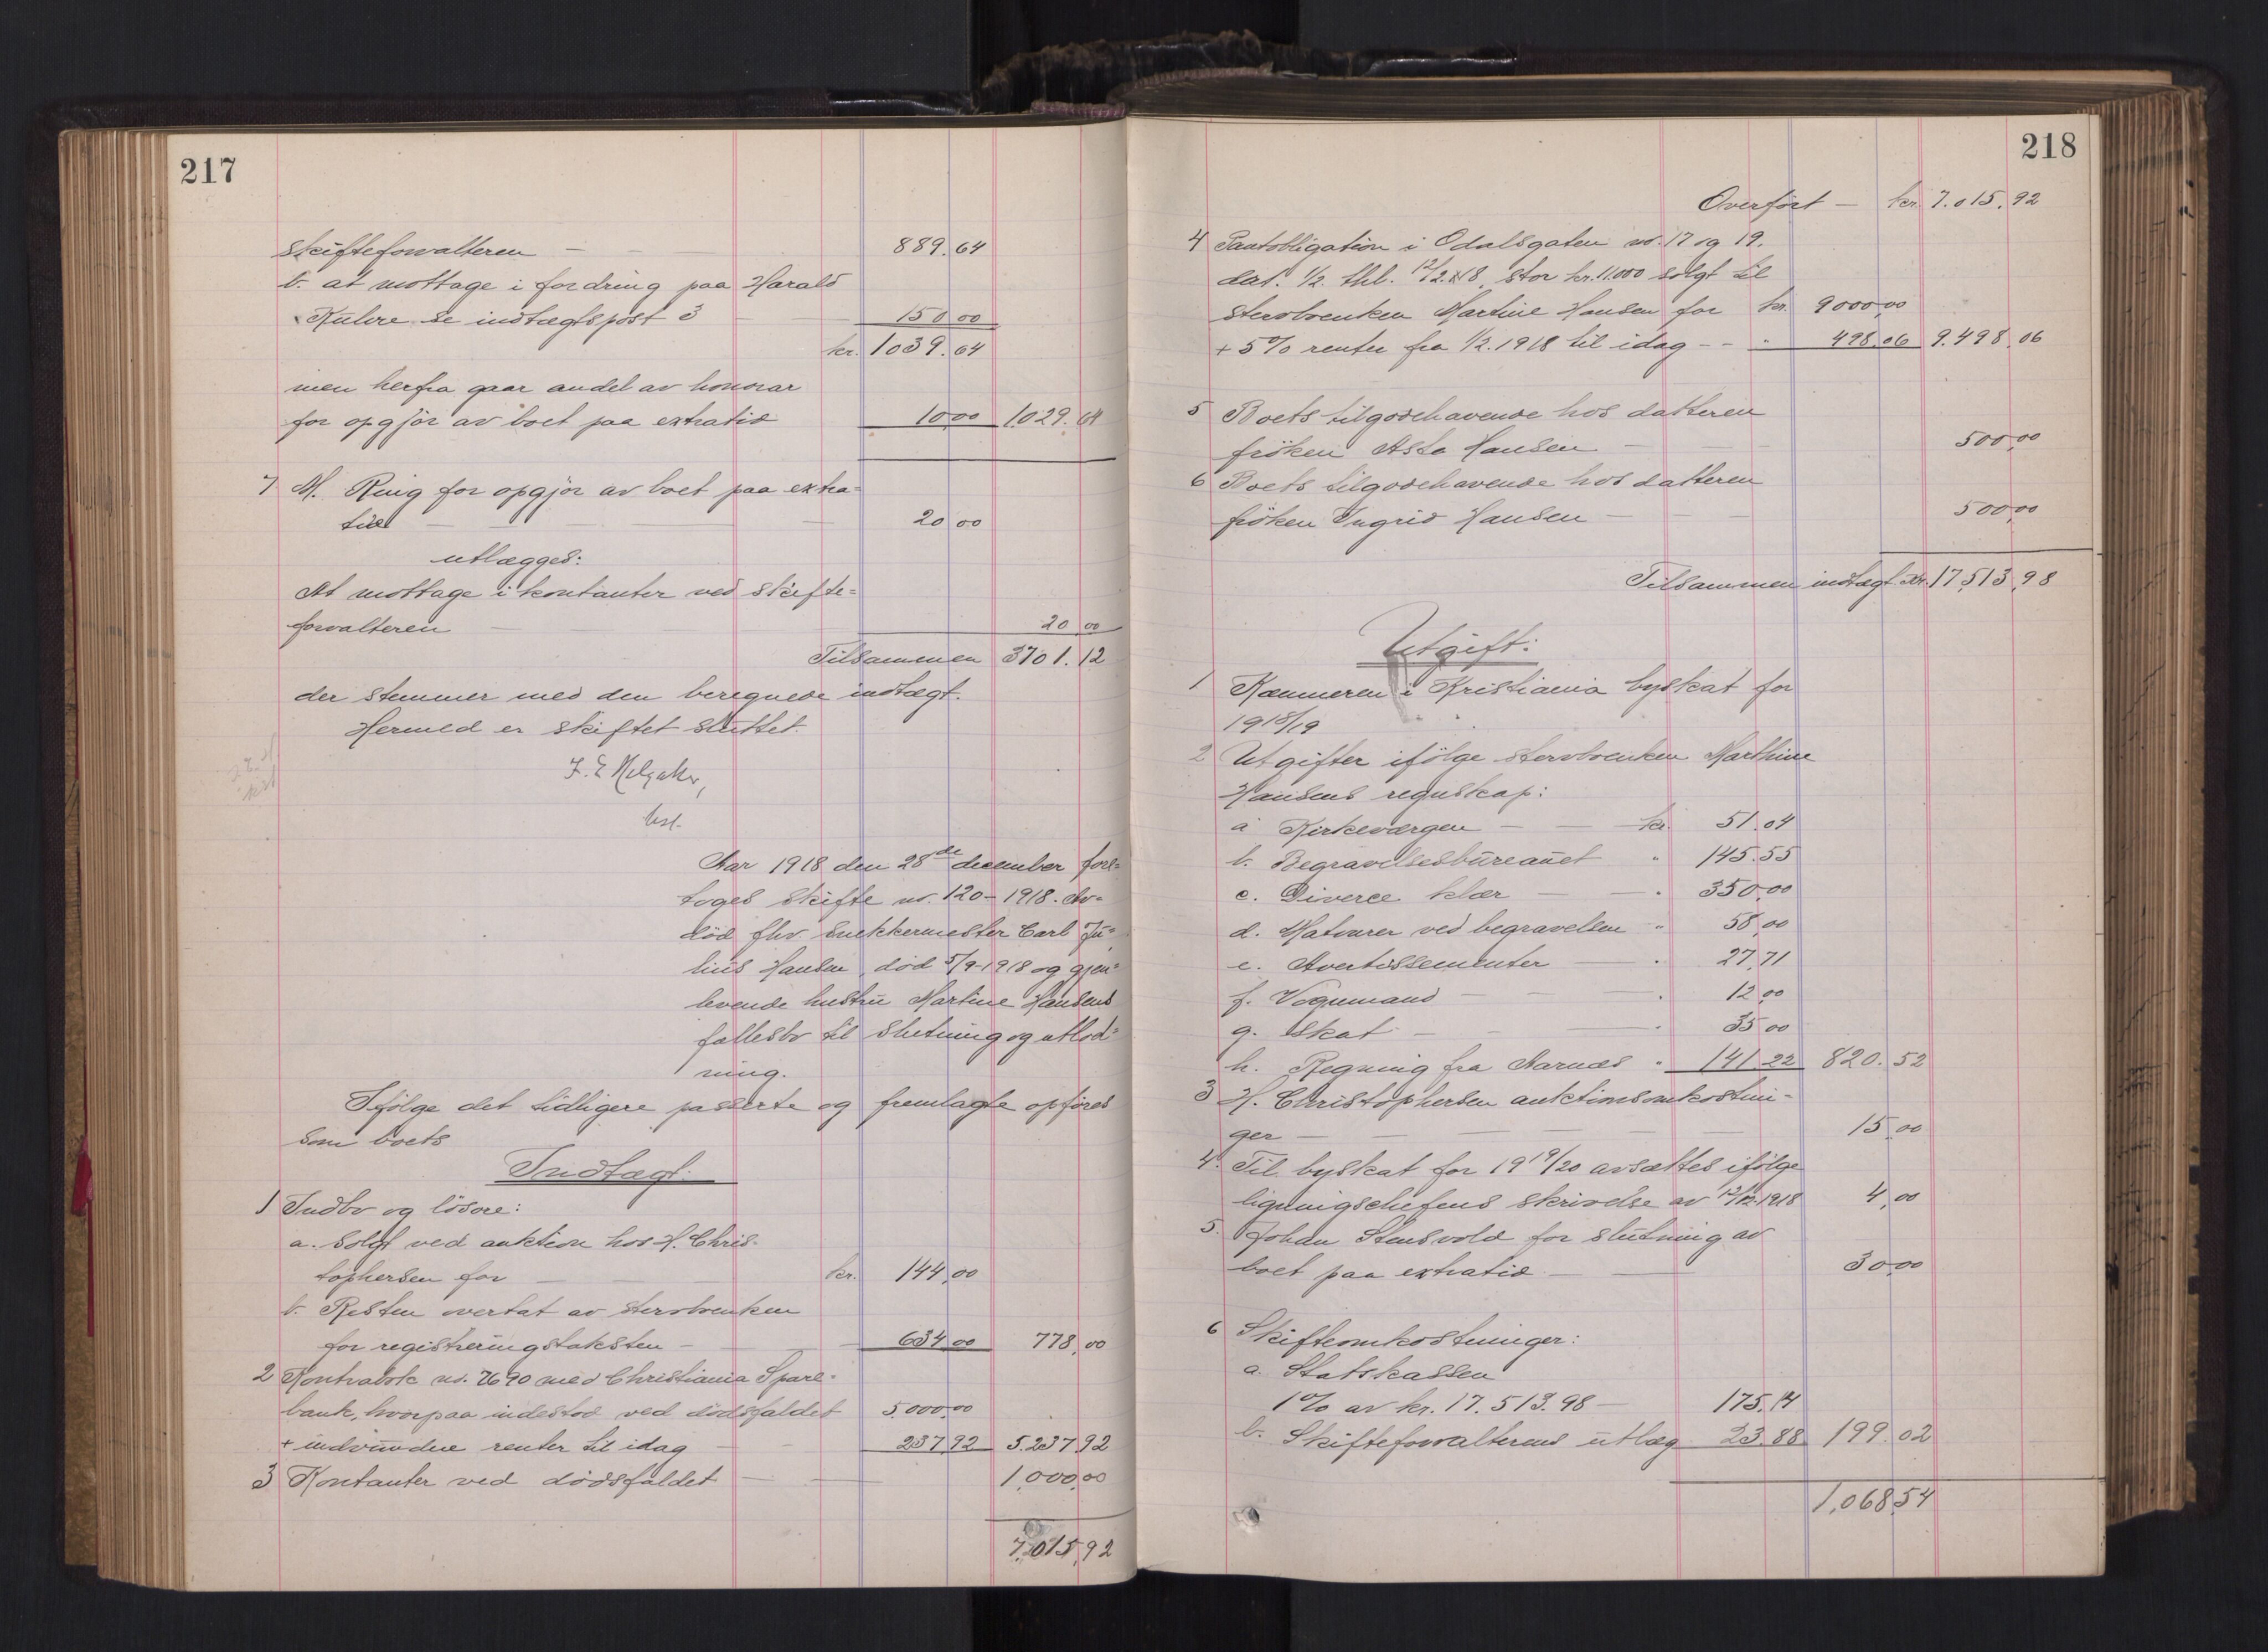 217
skifteforvalteren — — 889.64
b. at mottage i fordring paa Harald
se indtægtspost 3 — 150 00
kr. 1039.64
men herfra gaar andel av honorar
for opgjör av boet paa extratid 10 00 1029.64
7 M. Ring for opgjör av boet paa extra=
tid — — — — 20 00
utlægges:
At mottage i kontanter ved skifte=
forvalteren — 20 00
Tilsammen 3701.12
der stemmer med den beregnede indtægt.
Hermed er skiftet sluttet.
Aar 1918 den 28de december fore=
toges skifte nr. 120-1918. Av=
död fhv. snekkermester Carl Ju=
lius Hansen, död 5/9-1918 og gjen=
levende hustru Martine Hansens
fællesbo til slutning og utlod=
ning.
Ifölge det tidligere passerte og fremlagte opföres
som boets
Indtægt:
1 Indbo og lösöre:
a. Solgt ved auktion hos H. Chris-
tophersen for — — kr. 144,00
b. Resten overtat av stervboenken
for registreringstaksten — 634 00 778,00
2 Kontrabok nr. 7690 med Christiania Spare-
bank, hvorpaa indestod ved dödsfaldet 5.000,00
+ indvundne renter til idag — 237 92 5.237 92
3 Kontanter ved dödsfaldet — — 1,000,00
7,015,92
218
Overfört — kr. 7.015,92
4 Pantobligation i Odalsgaten nr. 17 og 19.
dat. 1/2 thl. 12/2.18, stor kr. 11.000 solgt til
stervboenken Martine Hansen for kr. 9000,00
+ 5% renter fra 1/2.1918 til idag -- " 498.06 9.498,06
5 Boets tilgodehavende hos datteren
fröken Asta Hansen — — 500,00
6 Boets tilgodehavende hos datteren
fröken Ingrid Hansen — — 500,00
Tilsammen indtægt kr. 17,513,98
Utgift:
1 Kæmneren i Kristiania byskat for
1918/19 " "
2 Utgifter ifölge stervboenken Marthine
Hansens regnskap:
a Kirkeværgen — — kr. 51.04
b. Begravelsesbureauet " 145.55
c. Diverce klær — — " 350,00
d. Matvarer ved begravelsen " 58,00
e. Avertissementer — " 27,71
f. Vognmand — — " 12,00
g. Skat — — " 35 00
h. Regning fra Aarnæs " 141 22 820.52
3 H. Christophersen auktionsomkostnin-
ger — — — — — — 15,00
4. Til byskat for 1919/20 avsættes ifölge
ligningschefens skrivelse av 12/12.1918 4,00
5. Johan Stensvold for slutning av
boet paa extratid — — 30,00
6 Skifteomkostninger:
a. Statskassen
1% av kr. 17.513.98 — 175.14
b. Skifteforvalterens utlæg 23.88 199.02
1,068,54